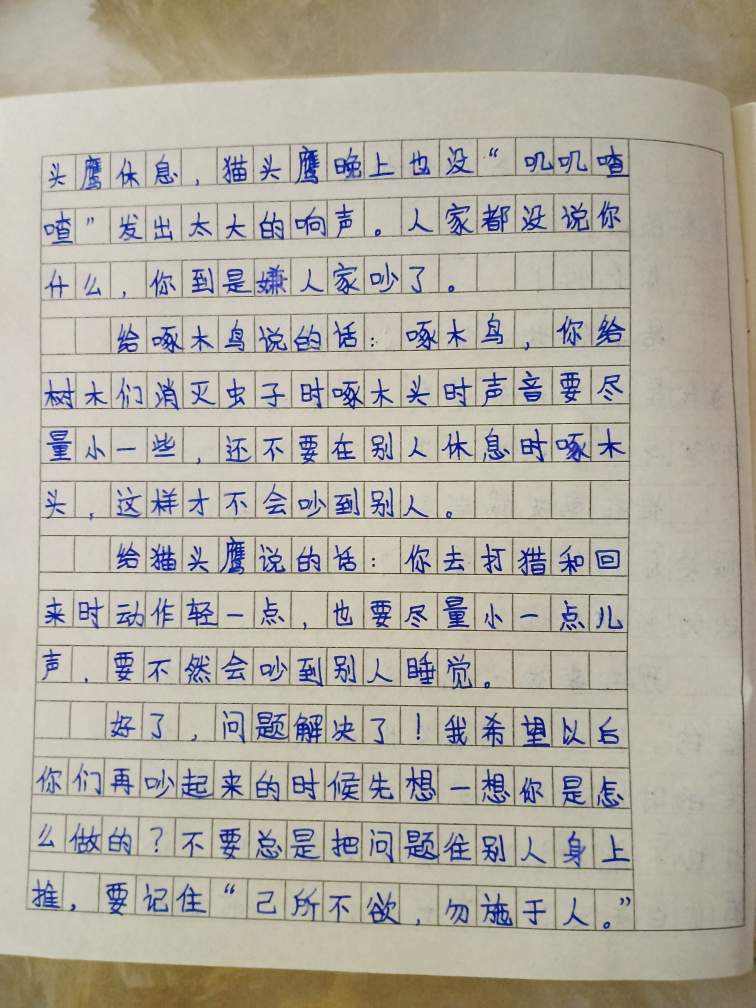 头鹰休息，猫头鹰晚上也没“叽叽喳
喳”发出太大的响声。人家都没说你
什么，你到是嫌人家吵了。
给啄木鸟说的话：啄木鸟，你给
树木们消灭虫子时啄木头时声音要尽
量小一些，还不要在别人休息时啄木
头，这样才不会吵到别人。
给猫头鹰说的话：你去打猎和回
来时动作轻一点，也要尽量小一点儿
声，要不然会吵到别人睡觉。
好了，问题解决了！我希望以后
你们再吵起来的时候先想一想你是怎
么做的？不要总是把问题往别人身上
推，要记住“己所不欲，勿施于人。”